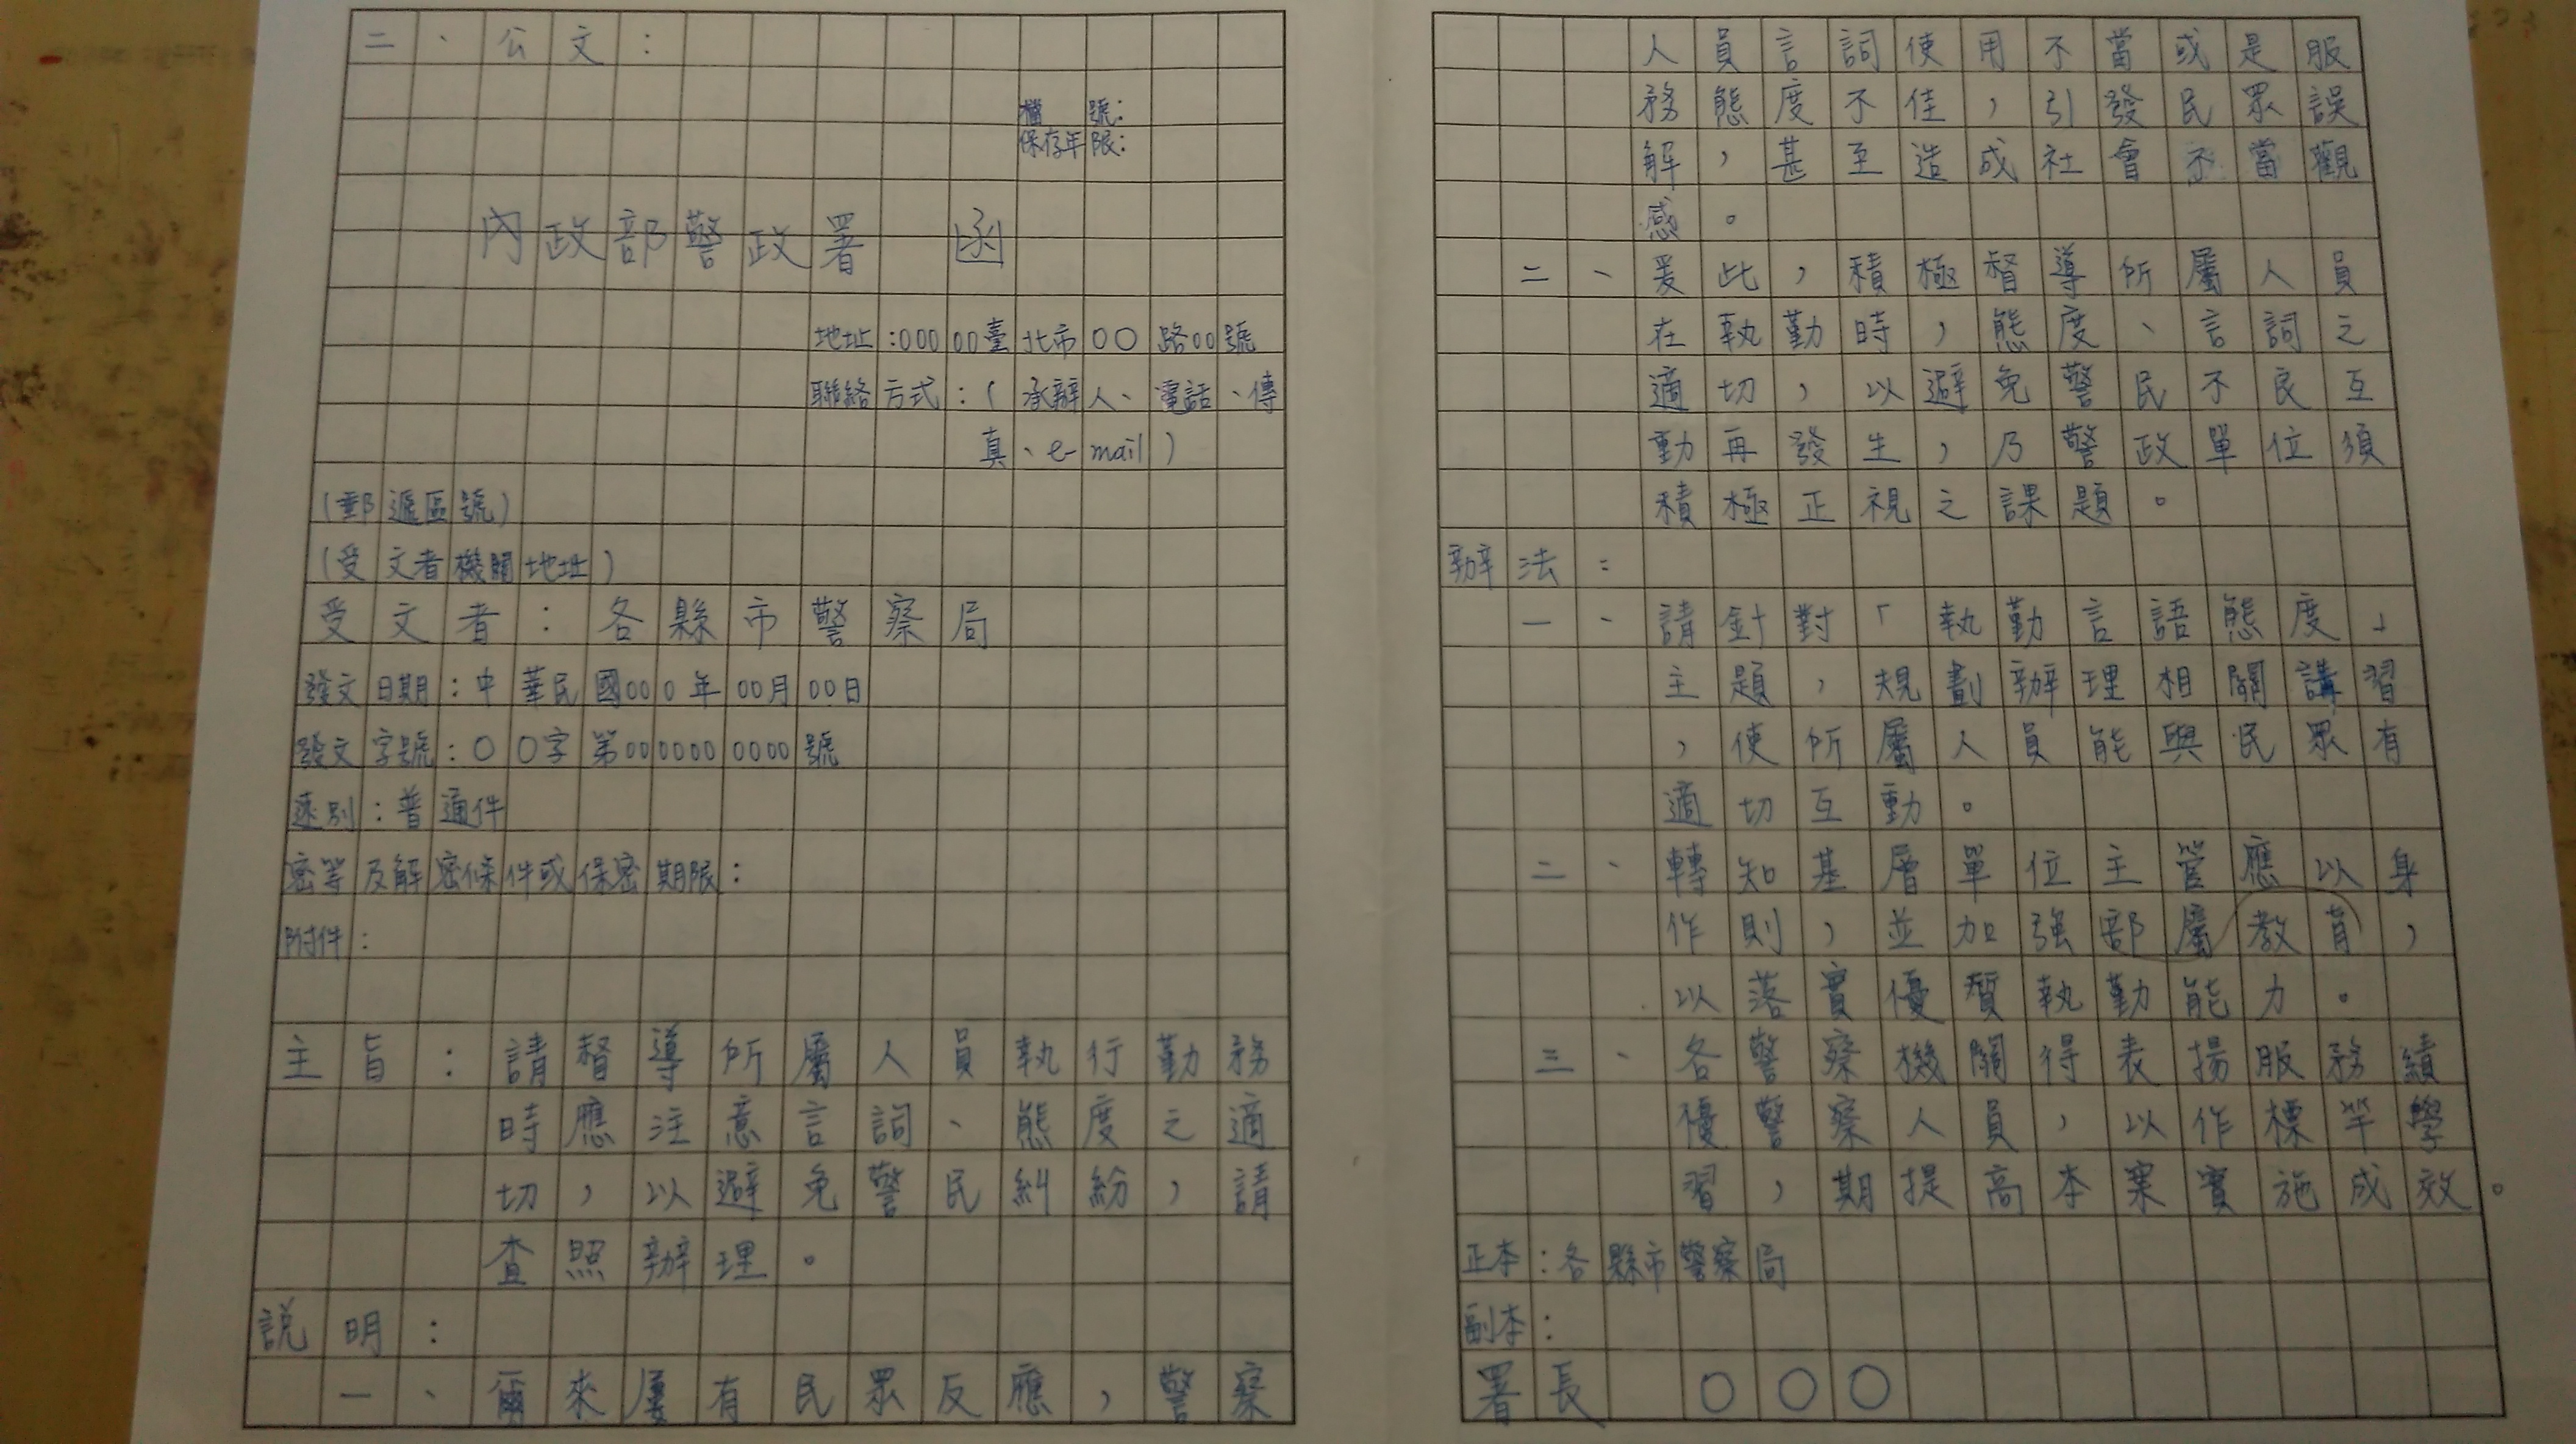 二、公文：
檔　號：
保存年限：
內政部警政署　函
地址：00000臺北市００路00號
聯絡方式：（承辦人、電話、傳
真、e-mail）
（郵遞區號）
（受文者機關地址）
受文者：各縣市警察局
發文日期：中華民國000年00月00日
發文字號：００字第0000000000號
速別：普通件
密等及解密條件或保密期限：
附件：
主旨：請督導所屬人員執行勤務
時應注意言詞、態度之適
切，以避免警民糾紛，請
查照辦理。
說明：
一、爾來屢有民眾反應，警察
人員言詞使用不當或是服
務態度不佳，引發民眾誤
解，甚至造成社會不當觀
感。
二、爰此，積極督導所屬人員
在執勤時，態度、言詞之
適切，以避免警民不良互
動再發生，乃警政單位須
積極正視之課題。
辦法：
一、請針對「執勤言語態度」
主題，規劃辦理相關講習
，使所屬人員能與民眾有
適切互動。
二、轉知基層單位主管應以身
作則，並加強部屬教育，
以落實優質執勤能力。
三、各警察機關得表揚服務績
優警察人員，以作標竿學
習，期提高本案實施成效。
正本：各縣市警察局
副本：
署長　○○○